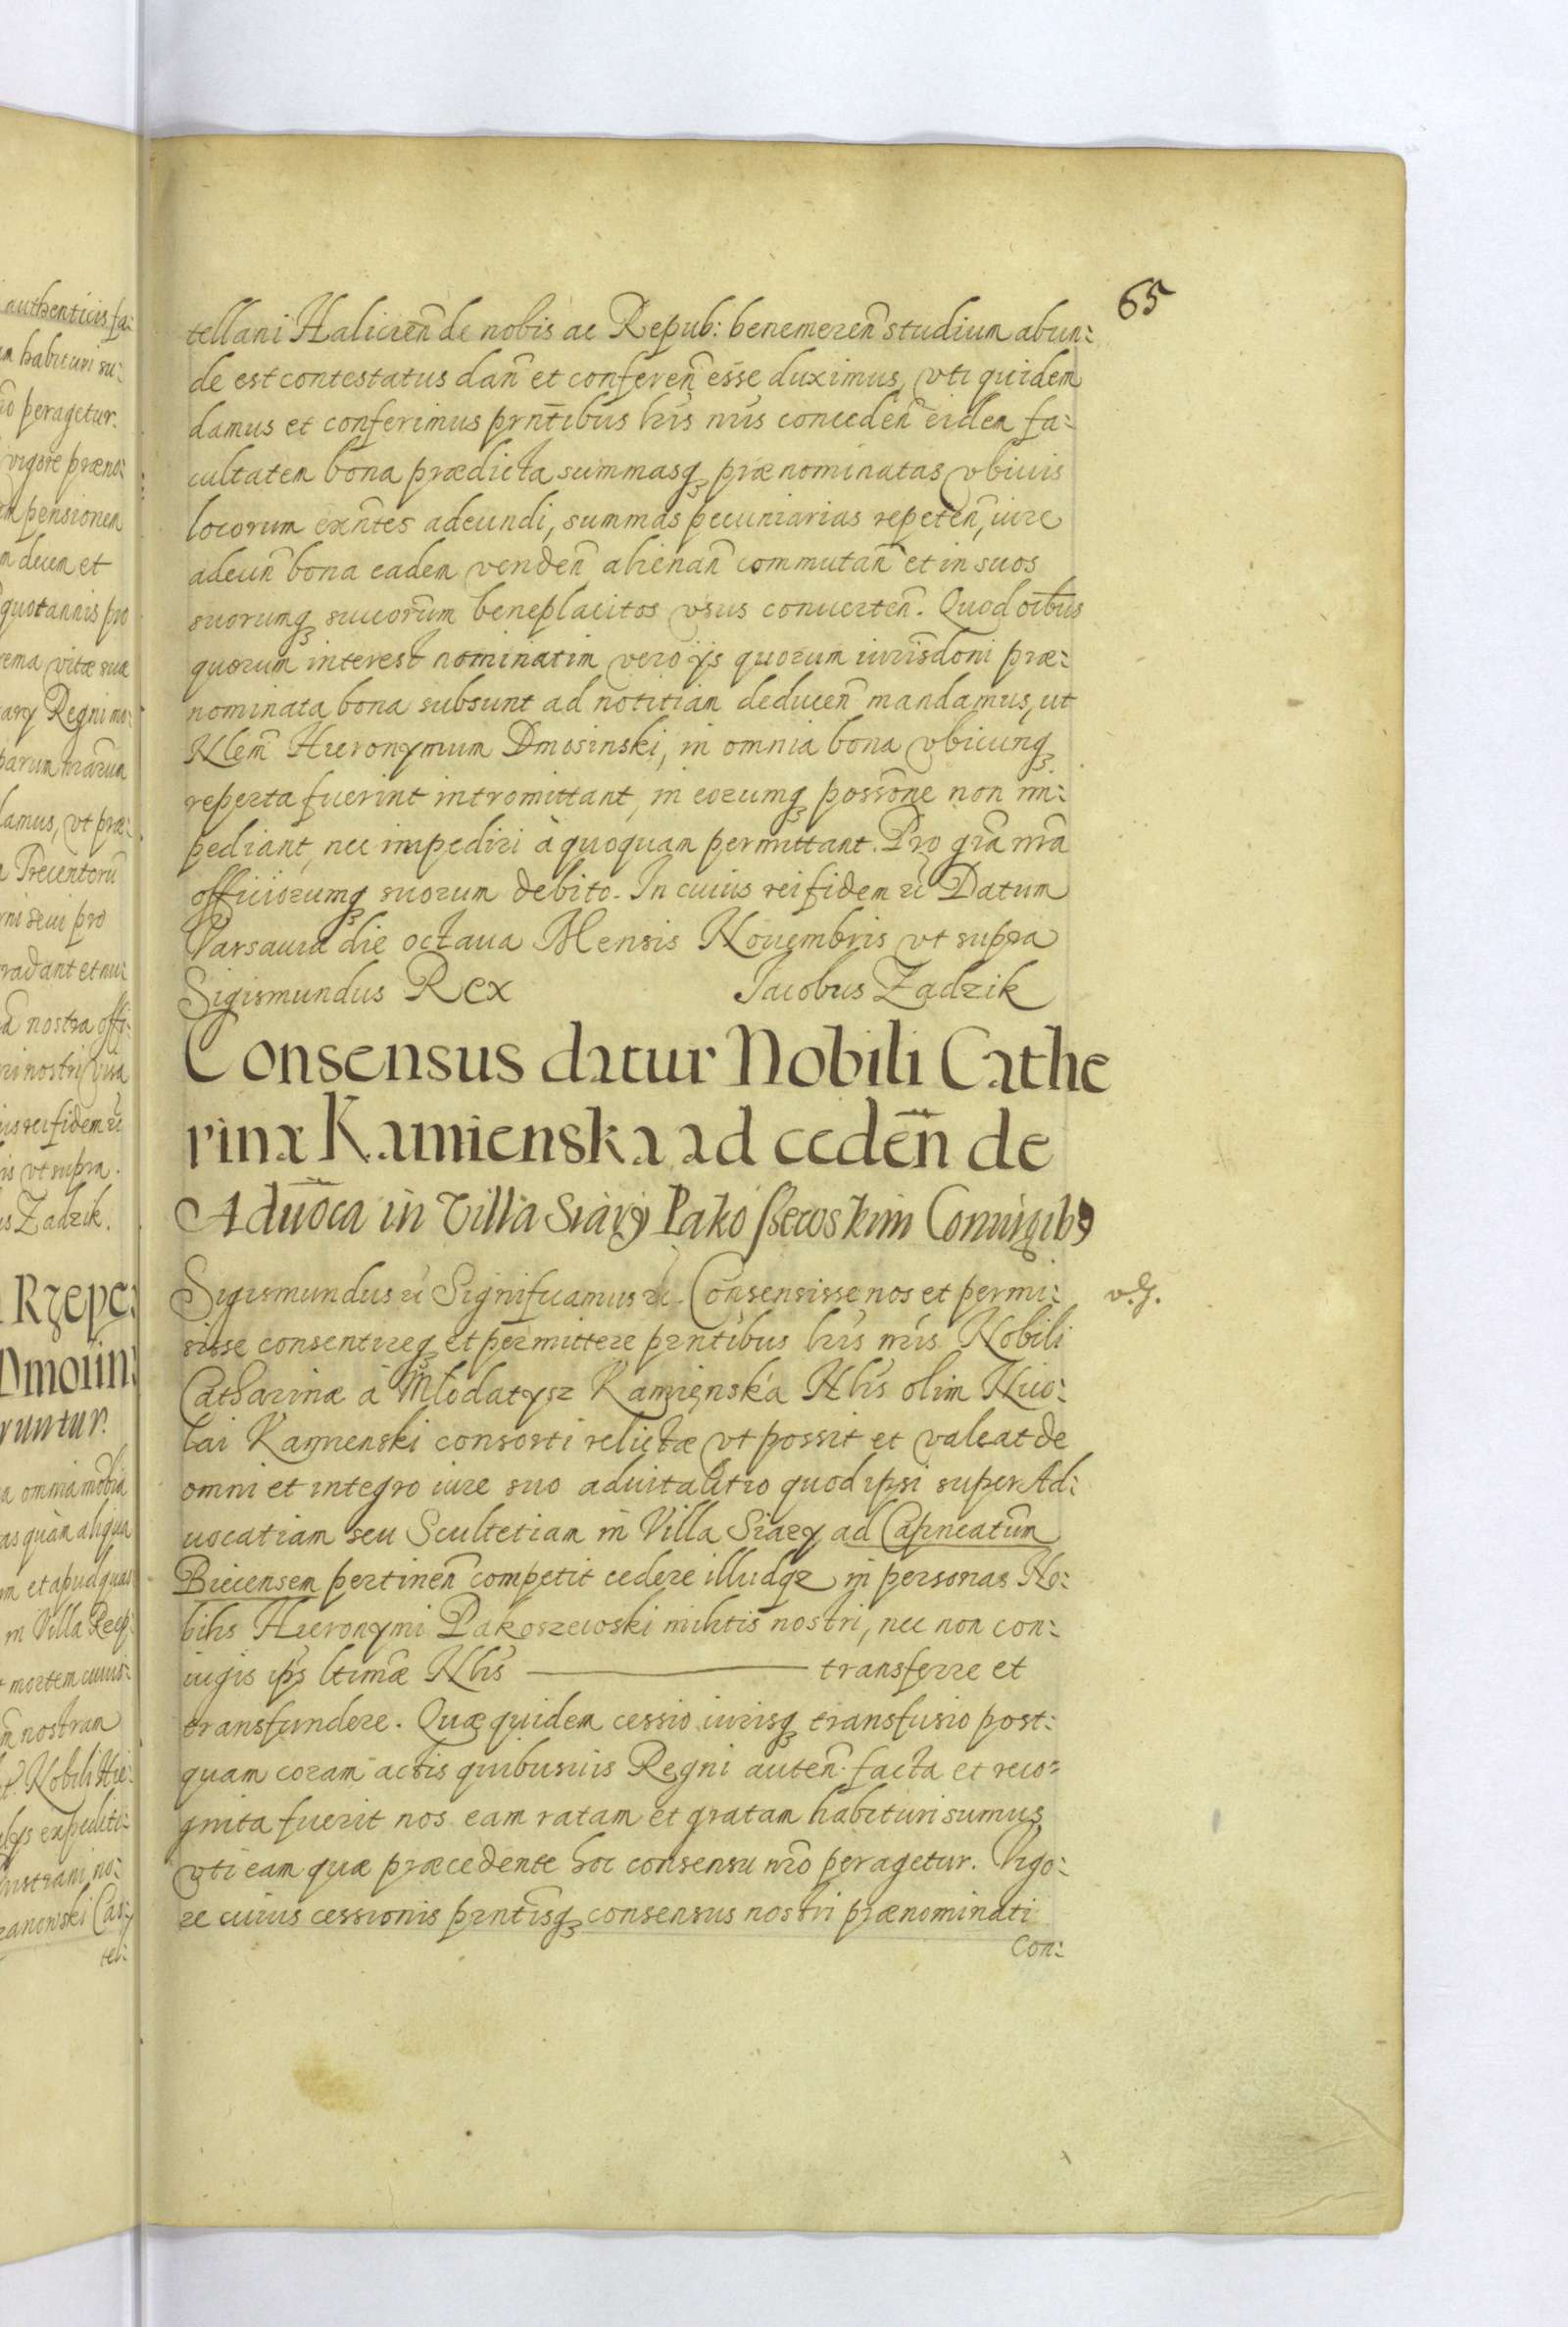 65
tellani Halicień de nobis ac Repub: benemereñ studium abun:
de est contestatus dañ et confereñ esse duximus, vti quidem
damus et conferimus prñtibus lrīs nrīs concedeñ eidem fa:
cultatem bona prædicta summasq₃ prænominatas vbivis
locorum exñtes adeundi, summas pecuniarias repeteñ, iure
adeuñ bona eadem vendeñ alienañ commutañ et in suos
suorumq₃ succorūm beneplacitos vsus conuerteñ. Quod oībus
quorum interest nominatim vero ijs quorum iurisdōni præ:
nominata bona subsunt ad notitiam deduceñ mandamus, ut
Nlem̄ Hieronymum Dmosinski, in omnia bona vbicunq₃
reperta fuerint intromittant, in eorumq₃ possōne non im:
pediant, nec impediri à quoquam permittant. Pro grā nrā
officiorumq₃ suorum debito. In cuius rei fidem rc̄ Datum
Varsauiæ die octaua Mensis Nouembris vt supra
Sigismundus Rex Jacobus Zadzik
Consensus datur Nobili Cathe
rinæ Kamienska ad cedeñ de
Aduōca in Villa Siary Pakossewskim Coniugibꝰ
Sigismundus rc̄ Significamus rc̄. Consensisse nos et permi:
sisse consentireq₃ et permittere prñtibus lrīs nrīs Nobili
Catharinæ à Młodatysz Kamienska Nlis olim Nico:
lai Kamienski consorti relictæ vt possit et valeat de
omni et integro iure suo aduitalitio quod ipsi super Ad:
uocatiam seu Scultetiam in Villa Siary ad Capneatūm
Biecensem pertineñ competit cedere illudqz in personas No:
bilis Hieronymi Pakoszewski militis nostri, nec non con:
iugis ips̄ ltimæ Nlis ——— transferre et
transfundere. Quæ quidem cessio iurisq₃ transfusio post:
quam coram actis quibusuis Regni auteñ. facta et reco:
gnita fuerit nos eam ratam et gratam habituri sumus
vti eam quæ præcedente hoc consensu nrō peragetur. Vigo:
re cuius cessionis prñtisq₃ consensus nostri prænominati
Con: